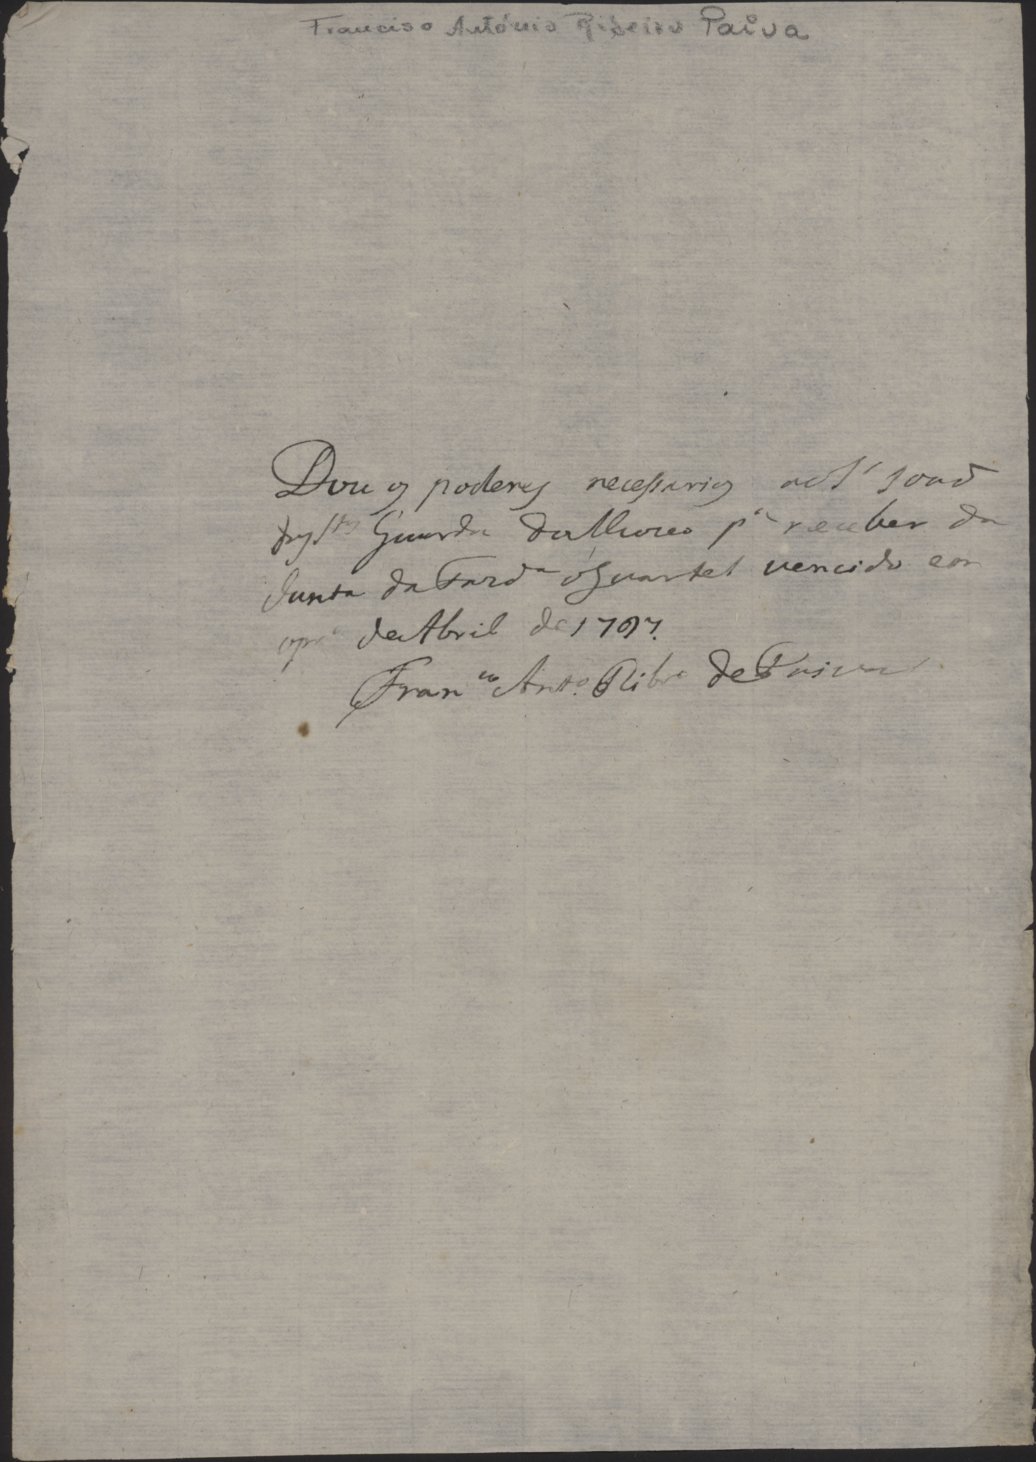 Francisco António Ribeiro Paiva
Dou os poderes necessarios ao Sr. Joaõ
dos Stos Guarda do Museo pa receber da
Junta da Fazda o Quartel vencido em
o pro de Abril de 1797.
Franco Anto. Ribro de Paiva